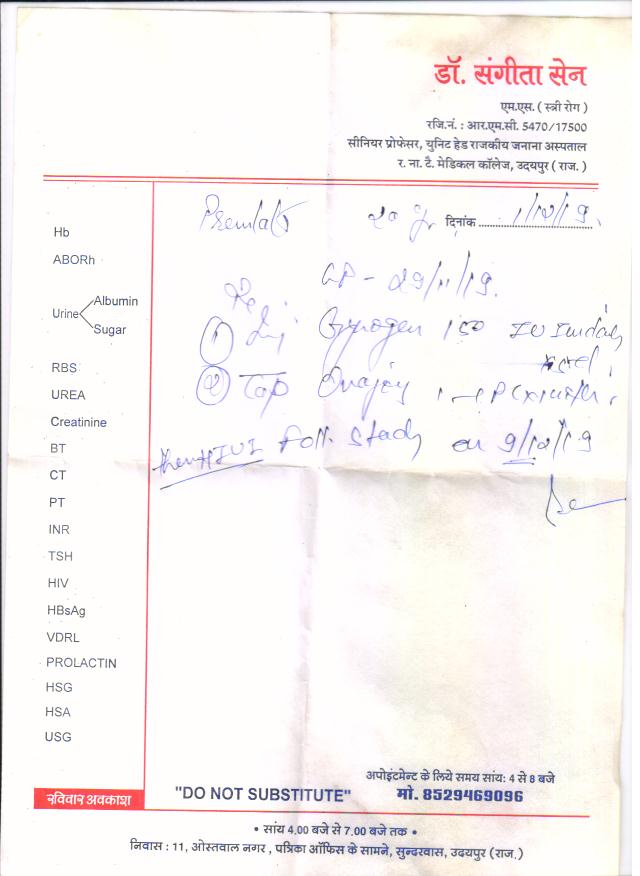 डॉ. संगीता सेन
एम.एस. ( स्त्री रोग )
रजि.नं. : आर.एम.सी. 5470/17500
सीनियर प्रोफेसर, युनिट हेड राजकीय जनाना अस्पताल
र. ना. टै. मेडिकल कॉलेज, उदयपुर ( राज. )
दिनांक 1/12/19.
- 29/11/19.
① Inj 150 IU
② Tab
then Foll. Study on 9/12/19
Hb
ABORh
Urine Albumin
Sugar
RBS
UREA
Creatinine
BT
CT
PT
INR
TSH
HIV
HBsAg
VDRL
PROLACTIN
HSG
HSA
USG
रविवार अवकाश
"DO NOT SUBSTITUTE"
अपोइंटमेन्ट के लिये समय सांय: 4 से 8 बजे
मो. 8529469096
• सांय 4.00 बजे से 7.00 बजे तक •
निवास : 11, ओस्तवाल नगर , पत्रिका ऑफिस के सामने, सुन्दरवास, उदयपुर (राज.)